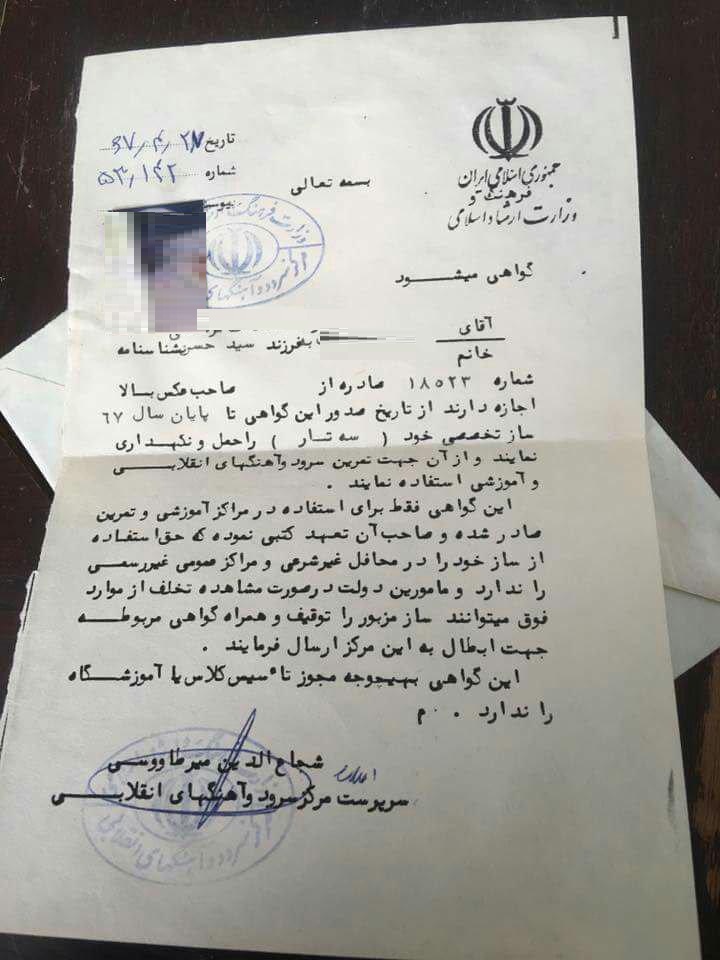 جمهوری اسلامی ایران
وزارت فرهنگ و ارشاد اسلامی
تاریخ ۶۷/۴/۲۷
شماره ۵۳/۱۴۲
بسمه تعالی
گواهی میشود
آقای
خانم
فرزند سید حسن بشناسنامه
شماره ۱۸۵۲۳ صادره از صاحب عکس بالا
اجازه دارند از تاریخ صدور این گواهی تا پایان سال ۶۷
ساز تخصصی خود ( سه تار ) را حمل و نگهداری
نمایند و از آن جهت تمرین سرود و آهنگهای انقلابی
و آموزشی استفاده نمایند .
این گواهی فقط برای استفاده در مراکز آموزشی و تمرین
صادر شده و صاحب آن تعهد کتبی نموده که حق استفاده
از ساز خود را در محافل غیرشرعی و مراکز عمومی غیررسمی
را ندارد و مامورین دولت درصورت مشاهده تخلف از موارد
فوق میتوانند ساز مزبور را توقیف و همراه گواهی مربوطه
جهت ابطال به این مرکز ارسال فرمایند .
این گواهی بهیچوجه مجوز تاسیس کلاس یا آموزشگاه
را ندارد . م
شجاع الدین میرطاووسی
سرپرست مرکز سرود و آهنگهای انقلابی